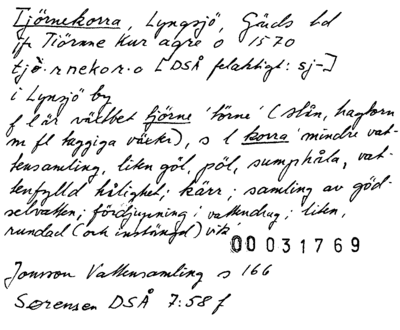 Tjörnekorra, Lyngsjö, Gärds hd
jfr Tiörnne Kur agre o 1570
tjò.rnekor.o [DSÅ felaktigt: sj-]
i Lynsjö by
f l är växtbet tjörne 'törne' (slån, hagtorn
m fl taggiga växter), s l korra 'mindre vat-
tensamling, liten göl, pöl, sumphåla, vat-
tenfylld hålighet; kärr; samling av göd-
selvatten; fördjupning i vattendrag; liten,
rundad (och instängd) vik'
00031769
Jonsson Vattensamling s 166
Sørensen DSÅ 7:58 f